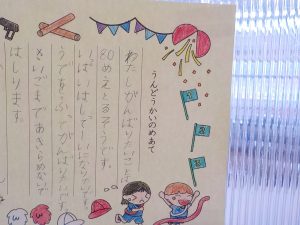 うんどうかいのめあて
わたしがんばりたいことは
80めえとるそうです。
うでをふってがんばりたいです。
さいごまであきらめないで
はしります。